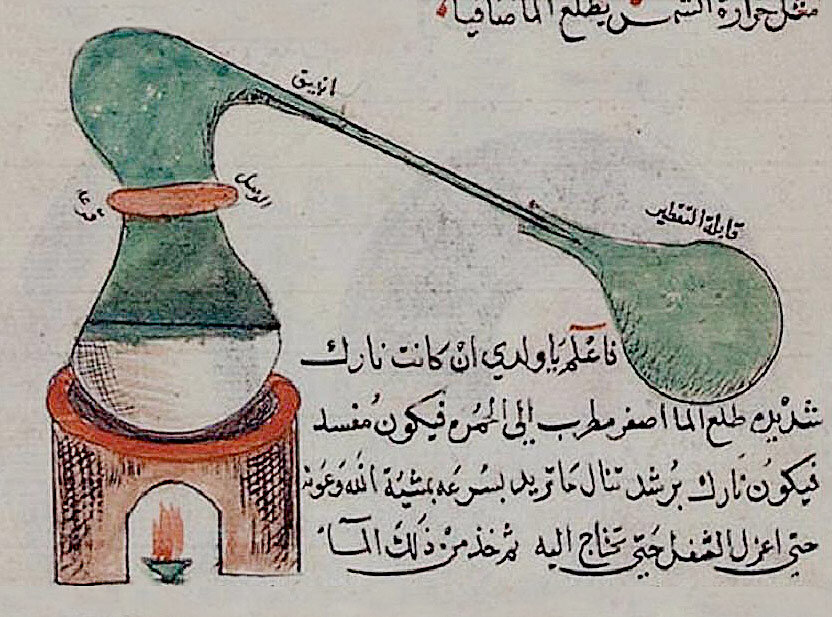 مثل حرارة الشمس يطلع الما صافيا
انبيق
الوصل
قابلة التقطير
فاعلم يا ولدي ان كانت نارك
شديده طلع الما اصفر مطرب الي الحمره فيكون مفسد
فيكون نارك برشد تنال ما تريد بسرعه بمشية الله وعونه
حتى اعزل الثفل حتى تحتاج اليه ثم خذ من ذلك المآء